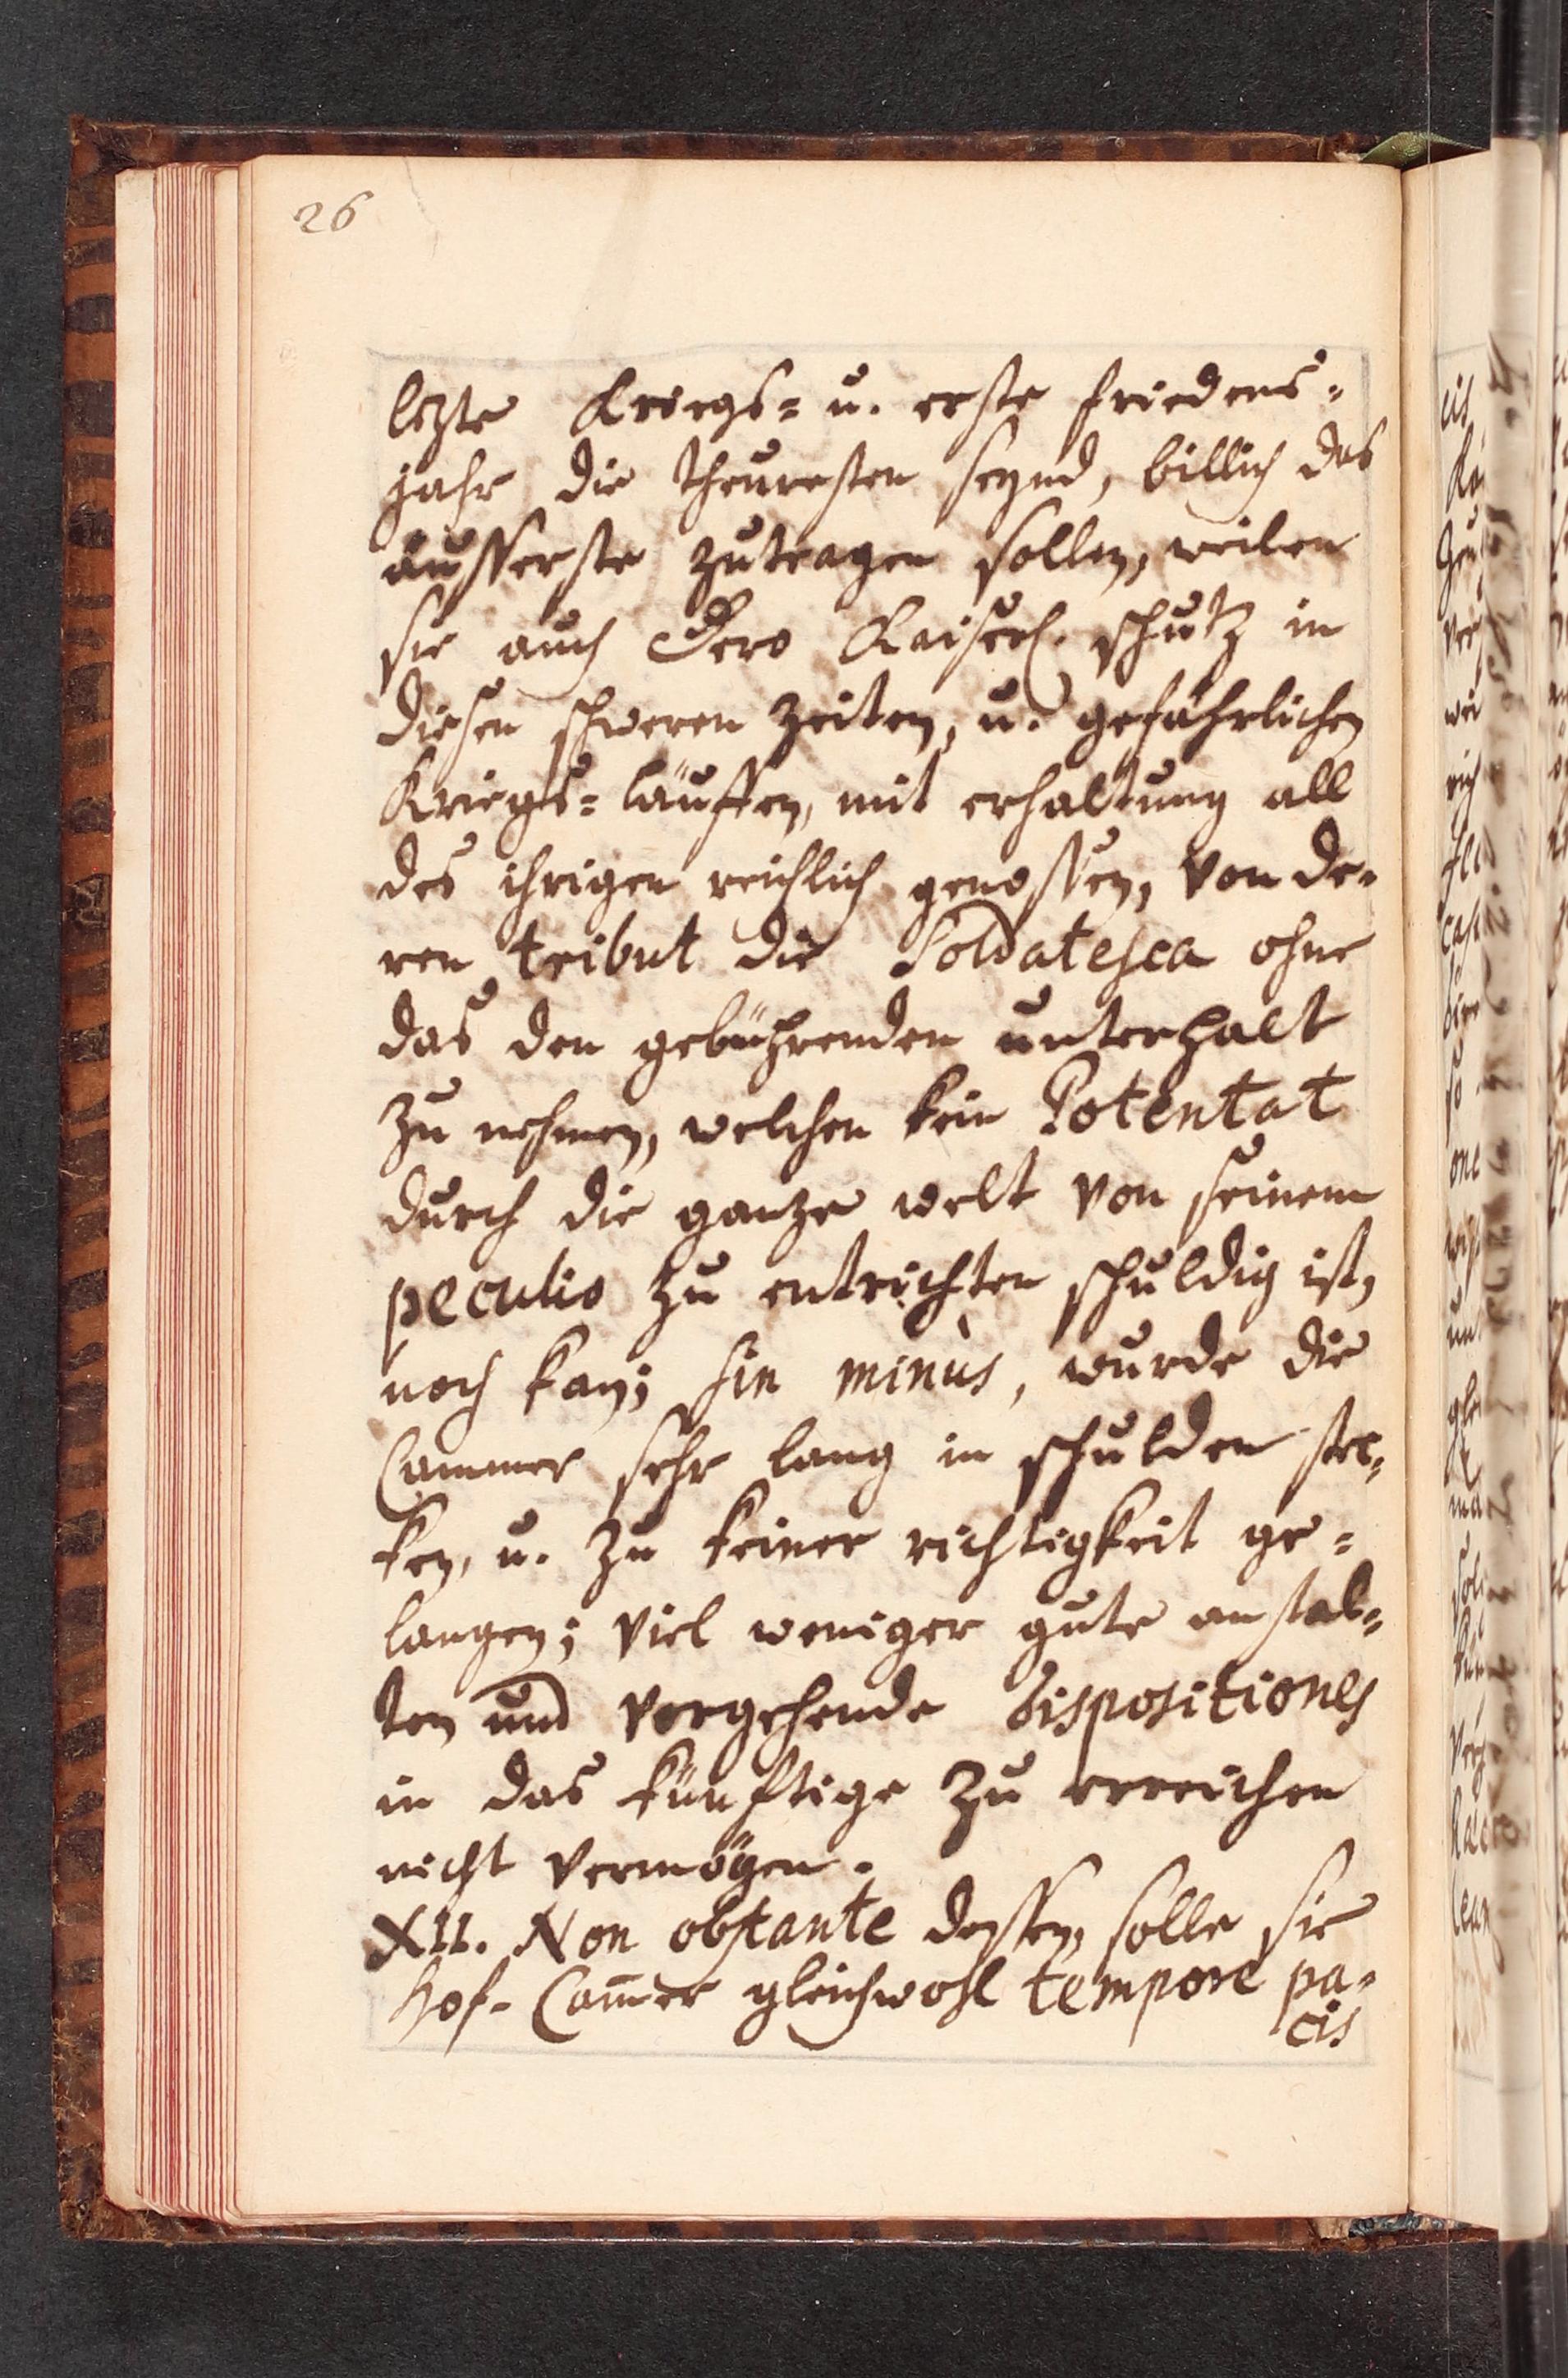 26
lezte Kriegs= u. erste friedens=
jahr die theuresten seynd, billich das
äusserste zutragen sollen, weilen
sie auch Dero Kaiserl. schutz in
diesen schweren zeiten, u. gefährlichen
Kriegs=läuffen, mit erhaltung all
des ihrigen reichlich genossen, von de=
ren tribut die Soldatesca ohne
das den gebührenden unterhalt
zu nehmen, welchen kein Potentat
durch die ganze welt von seinem
peculio zu entrichten schuldig ist,
noch kan; sin minùs, wurde die
Cammer sehr lang in schulden stec=
ken, u. zu keiner richtigkeit ge=
langen; viel weniger gute anstal=
ten und vorgehende dispositiones
in das künftige zu erreichen
nicht vermögen.
XII. Non obstante dessen, solle sie
Hof-Cam̄er gleichwohl tempore pa=
cis